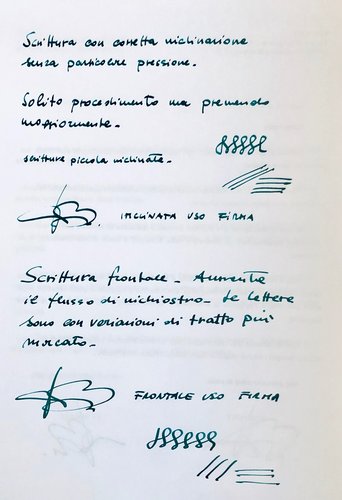 Scrittura con corretta inclinazione
senza particolare pressione.
Solito procedimento ma premendo
maggiormente.
scrittura piccola inclinata.
INCLINATA USO FIRMA
Scrittura frontale. Aumenta
il flusso di inchiostro. Le lettere
sono con variazioni di tratto più
marcato.
FRONTALE USO FIRMA